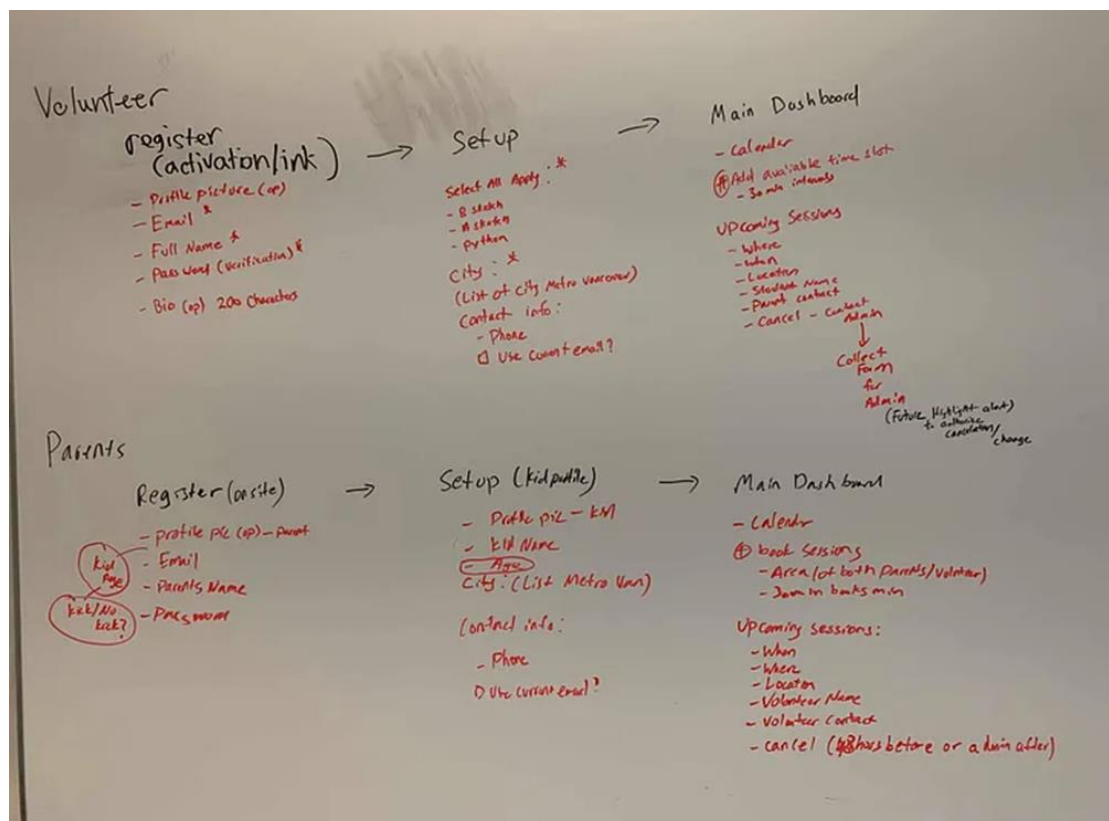 Volunteer
register
(activation/ink)
- Profile picture (op)
- Email *
- Full Name *
- Password (verification) *
- Bio (op) 200 Characters
→
Setup
Select All Apply : *
- Python
City : *
(List of City Metro Vancouver)
Contact info :
- Phone
□ Use current email?
→
Main Dashboard
- Calender
⊕ Add avaliable time slot
- 30 min intervals
Upcoming Sessions
- Where
- When
- Location
- Student Name
- Parent contact
- Cancel - Contact
Admin
↓
Collect
Form
for
Admin
(Future Highlight alert)
to authorize
cancelation/
change
Parents
Register (onsite)
- profile pic (op) - Parent
- Email
- Parents Name
- Password
kid
Age
kick/No
kick?
→
Setup (kid profile)
- Profile pic - kid
- kid Name
- Age
City : (List Metro Van)
Contact info :
- Phone
□ Use current email?
→
Main Dashboard
- Calender
⊕ book sessions
- Area (of both parents/volunteer)
- 30 min books min
Upcoming Sessions:
- When
- Where
- Location
- Volunteer Name
- Volunteer Contact
- cancel (48 hours before or admin after)